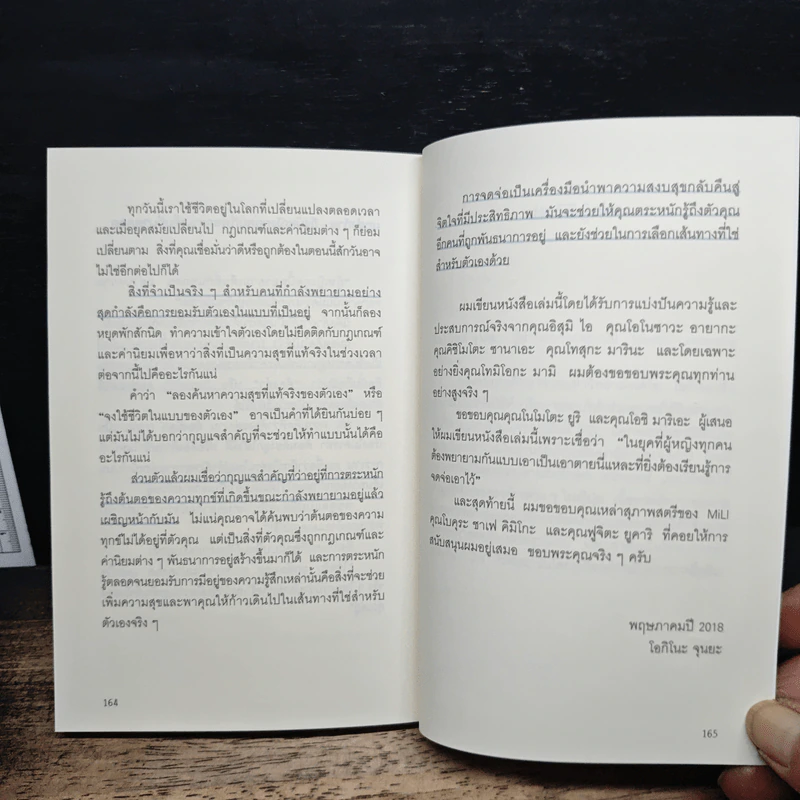 ทุกวันนี้เราใช้ชีวิตอยู่ในโลกที่เปลี่ยนแปลงตลอดเวลา
และเมื่อยุคสมัยเปลี่ยนไป กฎเกณฑ์และค่านิยมต่าง ๆ ก็ย่อม
เปลี่ยนตาม สิ่งที่คุณเชื่อมั่นว่าดีหรือถูกต้องในตอนนี้สักวันอาจ
ไม่ใช่อีกต่อไปก็ได้
สิ่งที่จำเป็นจริง ๆ สำหรับคนที่กำลังพยายามอย่าง
สุดกำลังคือการยอมรับตัวเองในแบบที่เป็นอยู่ จากนั้นก็ลอง
หยุดพักสักนิด ทำความเข้าใจตัวเองโดยไม่ยึดติดกับกฎเกณฑ์
และค่านิยมเพื่อหาว่าสิ่งที่เป็นความสุขที่แท้จริงในช่วงเวลา
ต่อจากนี้ไปคืออะไรกันแน่
คำว่า “ลองค้นหาความสุขที่แท้จริงของตัวเอง” หรือ
“จงใช้ชีวิตในแบบของตัวเอง” อาจเป็นคำที่ได้ยินกันบ่อย ๆ
แต่มันไม่ได้บอกว่ากุญแจสำคัญที่จะช่วยให้ทำแบบนั้นได้คือ
อะไรกันแน่
ส่วนตัวแล้วผมเชื่อว่ากุญแจสำคัญที่ว่าอยู่ที่การตระหนัก
รู้ถึงต้นตอของความทุกข์ที่เกิดขึ้นขณะกำลังพยายามอยู่แล้ว
เผชิญหน้ากับมัน ไม่แน่คุณอาจได้ค้นพบว่าต้นตอของความ
ทุกข์ไม่ได้อยู่ที่ตัวคุณ แต่เป็นสิ่งที่ตัวคุณซึ่งถูกกฎเกณฑ์และ
ค่านิยมต่าง ๆ พันธนาการอยู่สร้างขึ้นมาก็ได้ และการตระหนัก
รู้ตลอดจนยอมรับการมีอยู่ของความรู้สึกเหล่านั้นคือสิ่งที่จะช่วย
เพิ่มความสุขและพาคุณให้ก้าวเดินไปในเส้นทางที่ใช่สำหรับ
ตัวเองจริง ๆ
164
การจดจ่อเป็นเครื่องมือนำพาความสงบสุขกลับคืนสู่
จิตใจที่มีประสิทธิภาพ มันจะช่วยให้คุณตระหนักรู้ถึงตัวคุณ
อีกคนที่ถูกพันธนาการอยู่ และยังช่วยในการเลือกเส้นทางที่ใช่
สำหรับตัวเองด้วย
ผมเขียนหนังสือเล่มนี้โดยได้รับการแบ่งปันความรู้และ
ประสบการณ์จริงจากคุณอิสุมิ ไอ คุณโอโนซาวะ อายากะ
คุณคิชิโมโตะ ซานาเอะ คุณโทสุกะ มารินะ และโดยเฉพาะ
อย่างยิ่งคุณโทมิโอกะ มามิ ผมต้องขอขอบพระคุณทุกท่าน
อย่างสูงจริง ๆ
ขอขอบคุณคุณโนโมโตะ ยูริ และคุณโอชิ มาริเอะ ผู้เสนอ
ให้ผมเขียนหนังสือเล่มนี้เพราะเชื่อว่า “ในยุคที่ผู้หญิงทุกคน
ต้องพยายามกันแบบเอาเป็นเอาตายนี่แหละที่ยิ่งต้องเรียนรู้การ
จดจ่อเอาไว้”
และสุดท้ายนี้ ผมขอขอบคุณเหล่าสุภาพสตรีของ MiLI
คุณโบคุระ ซาเฟ คิมิโกะ และคุณฟูจิตะ ยูคาริ ที่คอยให้การ
สนับสนุนผมอยู่เสมอ ขอบพระคุณจริง ๆ ครับ
พฤษภาคมปี 2018
โอกิโนะ จุนยะ
165